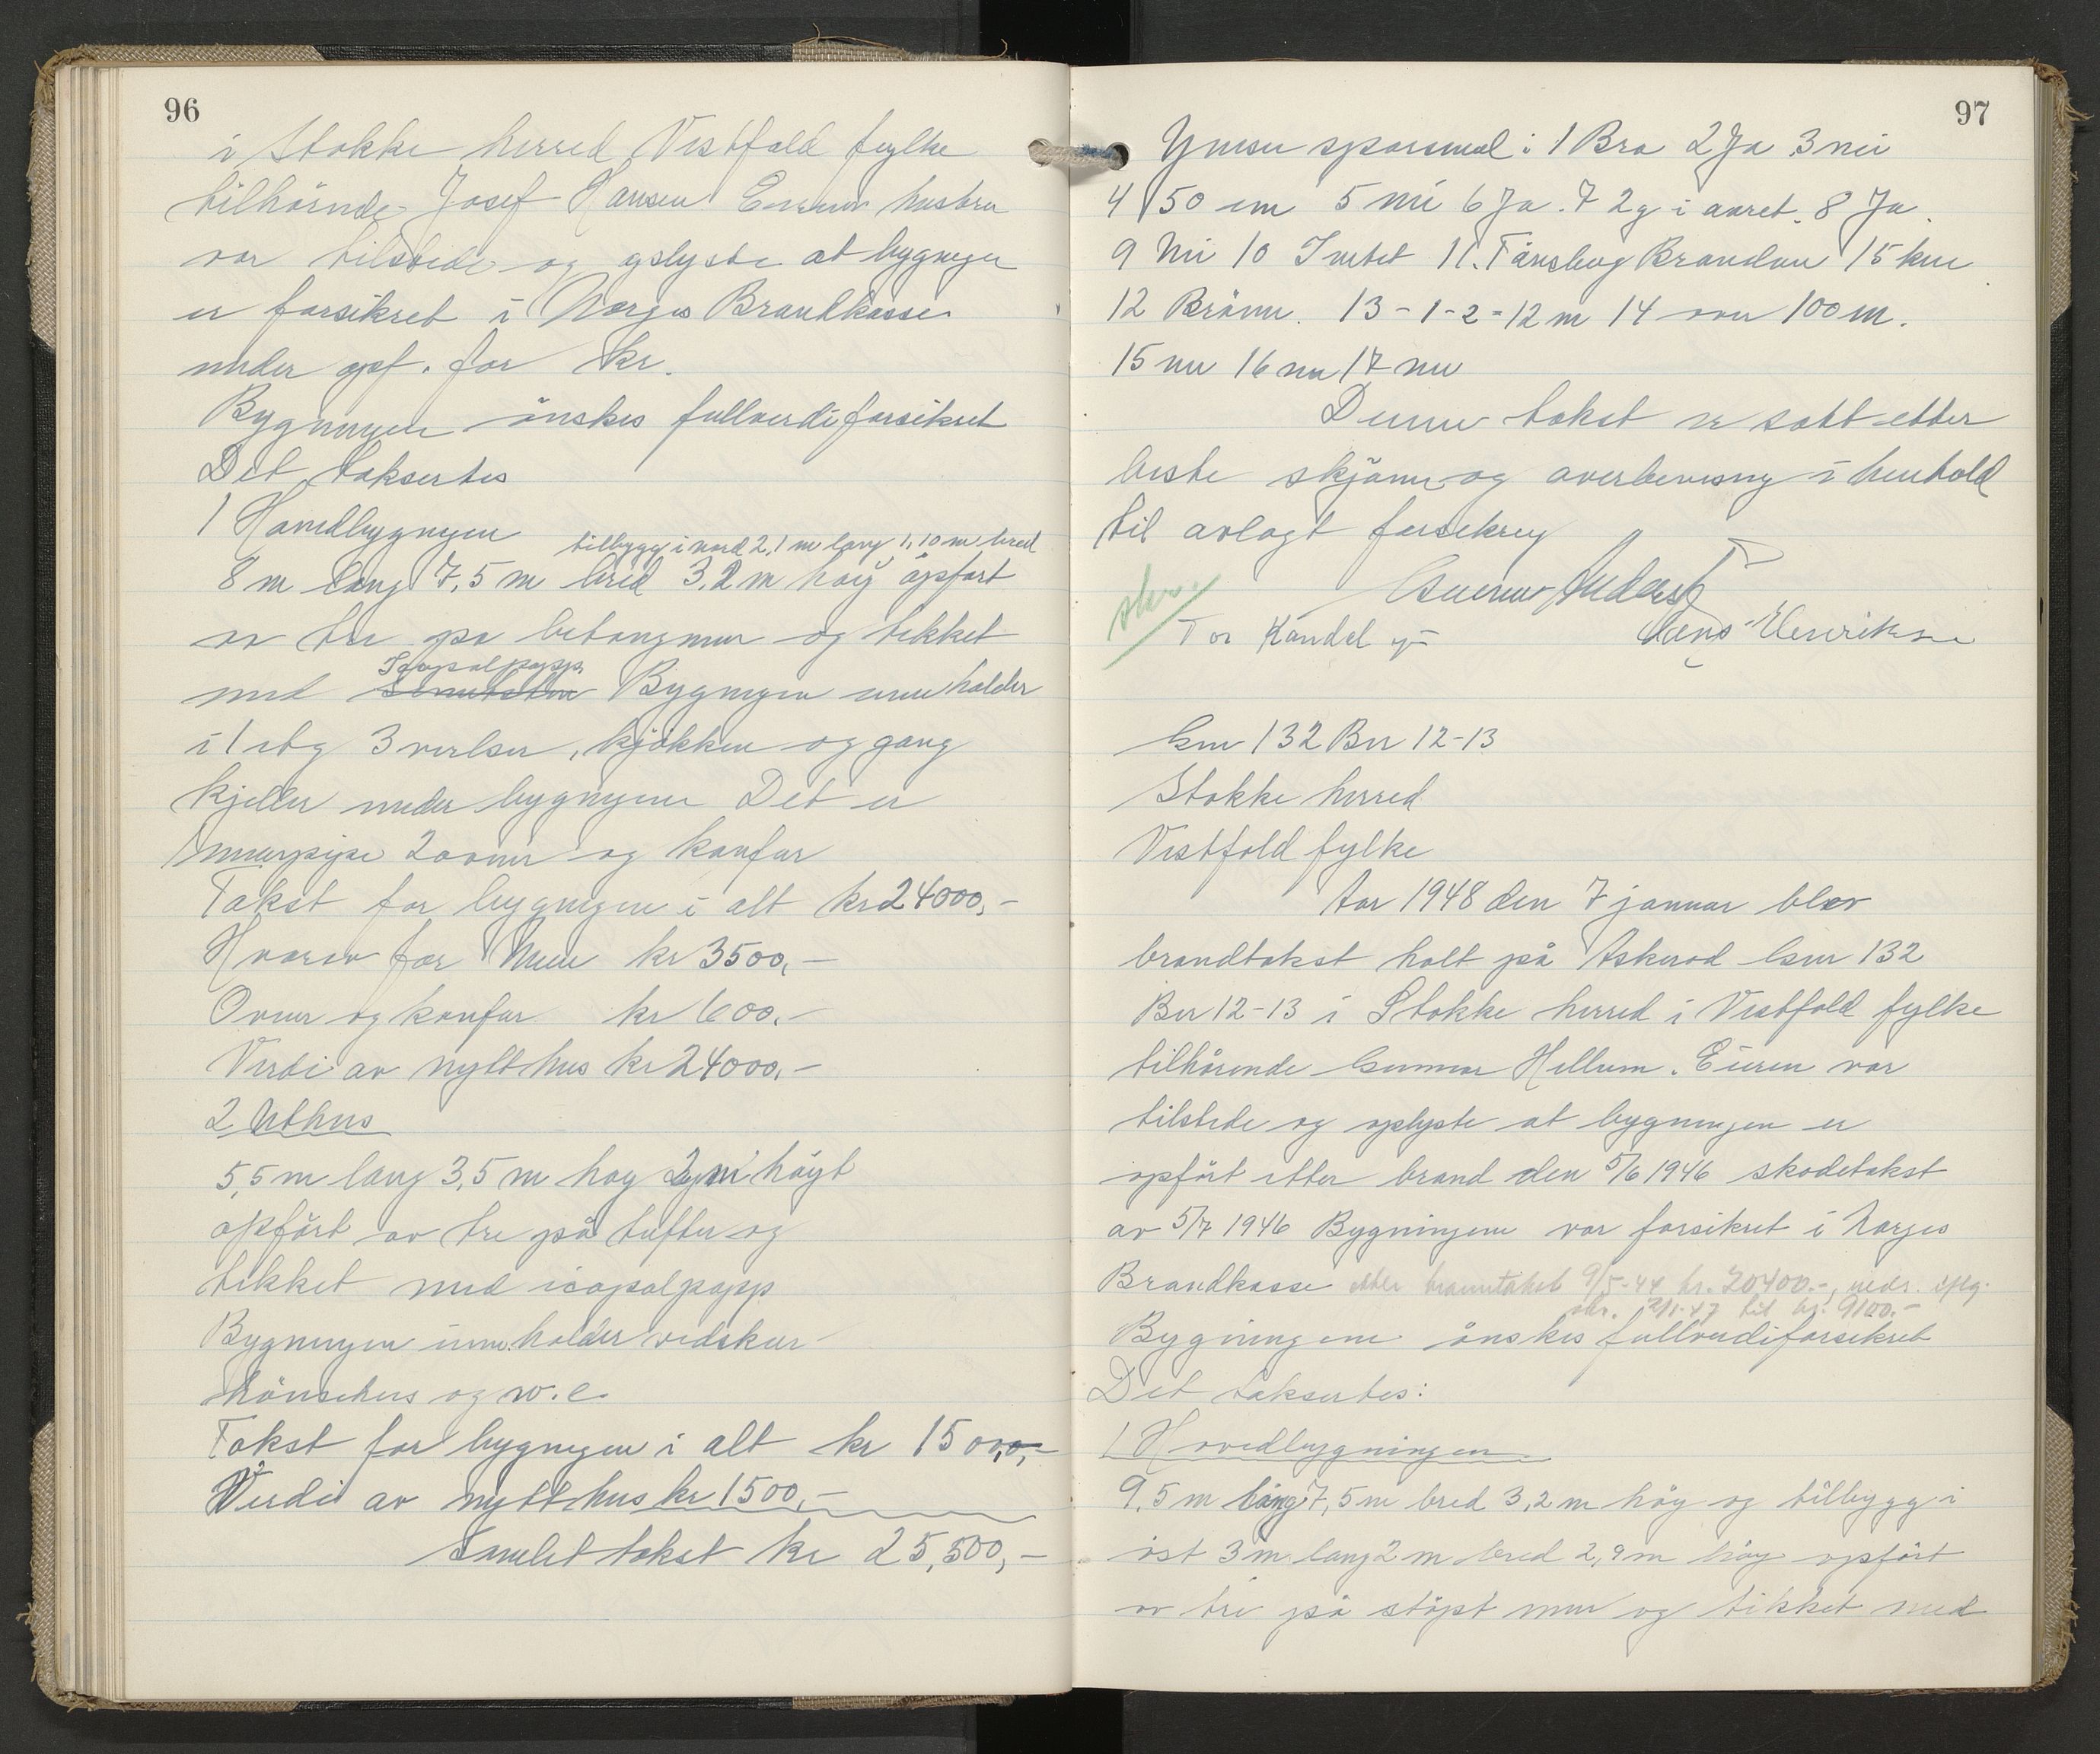 96
i Stokke herred Vestfold fylke
tilhörnde Josef Hansen Eierens hustru
var tilstede og oplyste at bygngen
er forsikret i Norges Brandkasse
under opf. for kr.
Bygningen önskes fullverdiforsikret
Det taksertes
1 Hovedbygngen
tilbygg i nord 2,1 m lang 1,10 m bred
8 m lang 7,5 m bred 3,2 m höy opfört
av tre på betongmur og tekket
Icopalpapp
med Sementsten Bygngen inneholder
i 1 etg 3 verlser, kjökken og gang
kjeller under bygngen Det er
1 murpipe 2 ovner og komfur
Takst for bygngen i alt kr 24000,-
Hvorav for Mur kr 3500,-
Ovner og komfur kr 600.-
Verdi av nytt hus kr 24000.-
2 Uthus
5,5 m lang 3,5 m hög 2 m höyt
opfört av tre på tufter og
tekket med icopalpapp
Bygningen inneholder vedskur
hönsehus og w.c.
Takst for bygngen i alt kr 1500,-
Verdi av nytt hus kr 1500,-
Samlet takst kr 25,500,-
97
Ymse sporsmal: 1 Bra 2 Ja 3 nei
4 150 cm 5 nei 6 Ja. 7 2 g i aaret. 8 Ja.
9 Nei 10 Intet 11. Tönsberg Brandvn 15 km
12 Brönn. 13 - 1-2 = 12 m 14 over 100 m.
15 nei 16 nei 17 nei
Denne takst er satt etter
beste skjönn og overbevisng i henhold
til avlagt forsikrng
skr.
Gunnar Anders
Tor Kandal
Hans Henriksen
Gnr 132 Bnr 12-13
Stokke herred
Vestfold fylke
Aar 1948 den 7 januar blev
brandtakst holt på Askerod Gnr 132
Bnr 12-13 i Stokke herred i Vestfold fylke
tilhörende Gunnar Hellum. Eieren var
tilstede og oplyste at bygningen er
opfört etter brand den 5/6 1946 skadetakst
av 5/7 1946 Bygningene var forsikret i Norges
Brandkasse etter branntakst 9/5-44 kr. 20400.-, neds. iflg.
skr. 2/1-47 til kr. 9100.-
Bygningene önskes fullverdiforsikret
Det taksertes:
1 Hovedbygningen
9,5 m lang 7,5 m bred 3,2 m höy og tilbygg i
öst 3 m lang 2 m bred 2,9 m höy opfört
av tre på stöpt mur og tekket med